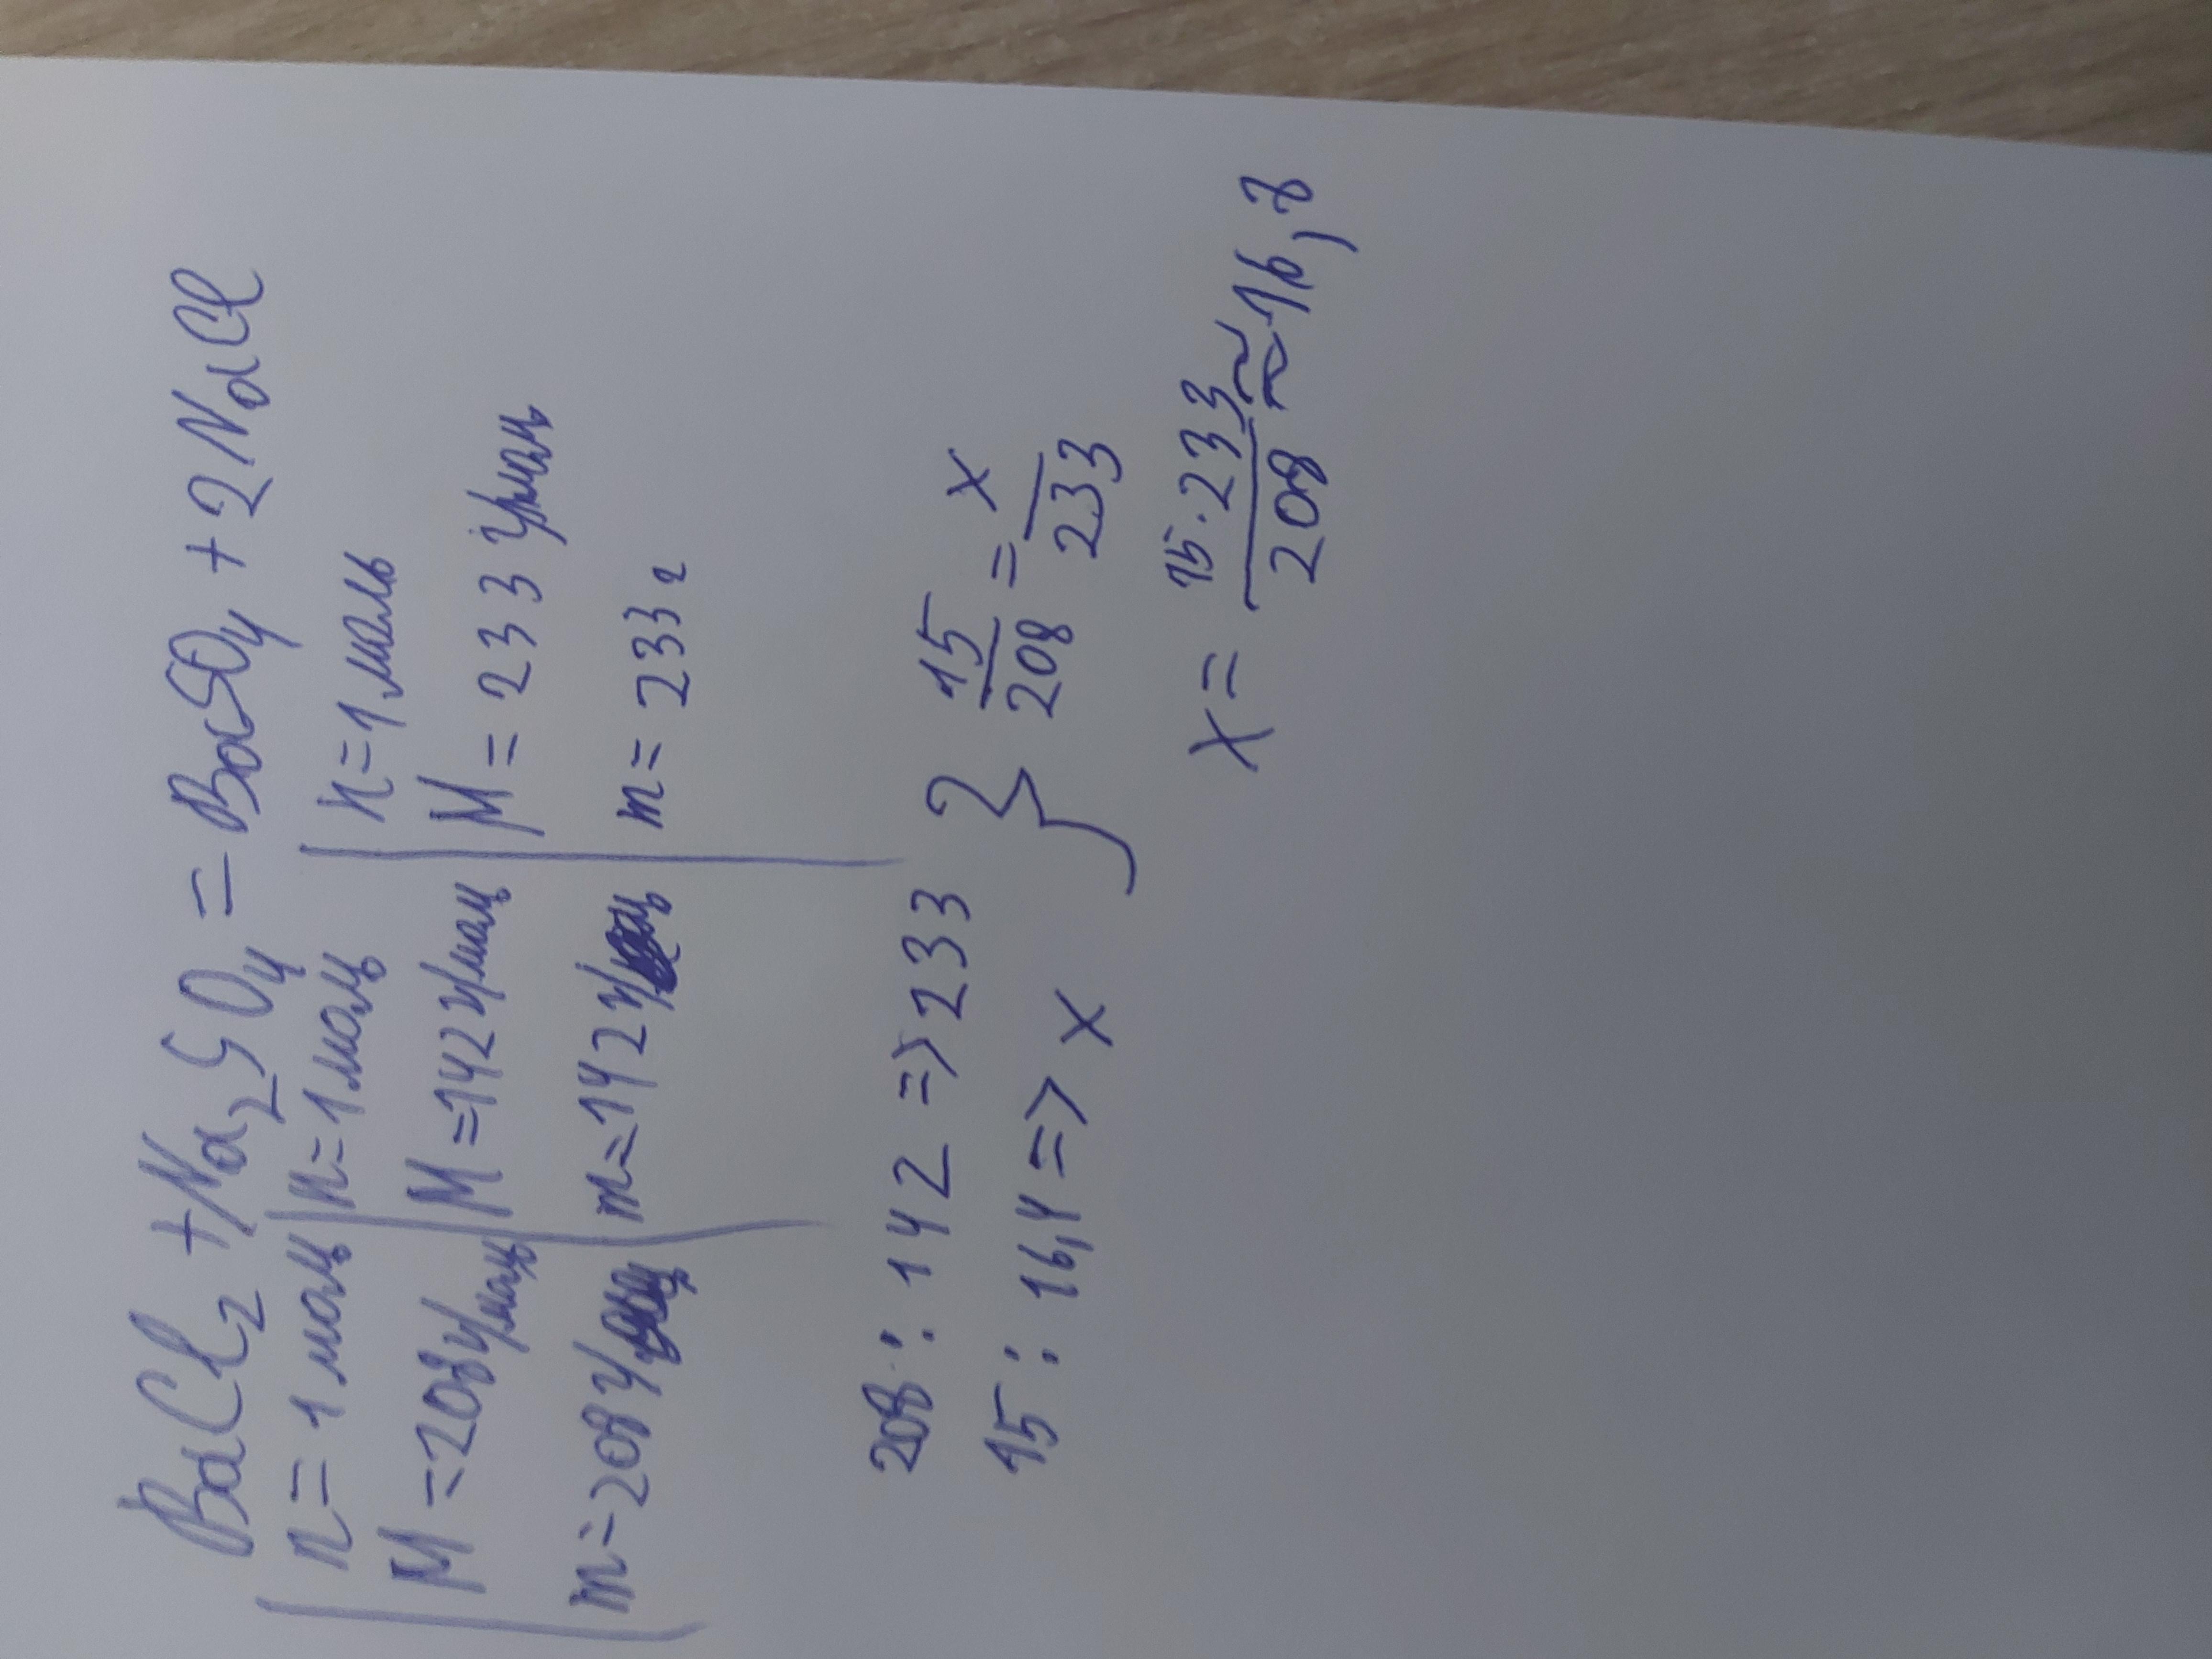 BaCl₂ + Na₂SO₄ = BaSO₄ + 2NaCl
n = 1 моль | n = 1 моль | n = 1 моль
M = 208 г/моль | M = 142 г/моль | M = 233 г/моль
m = 208 г/ | m = 142 г/ | m = 233 г
208 : 142 => 233 } 15/208 = x/233
15 : 16,4 => x
x = 15·233/208 ≈ 16,8